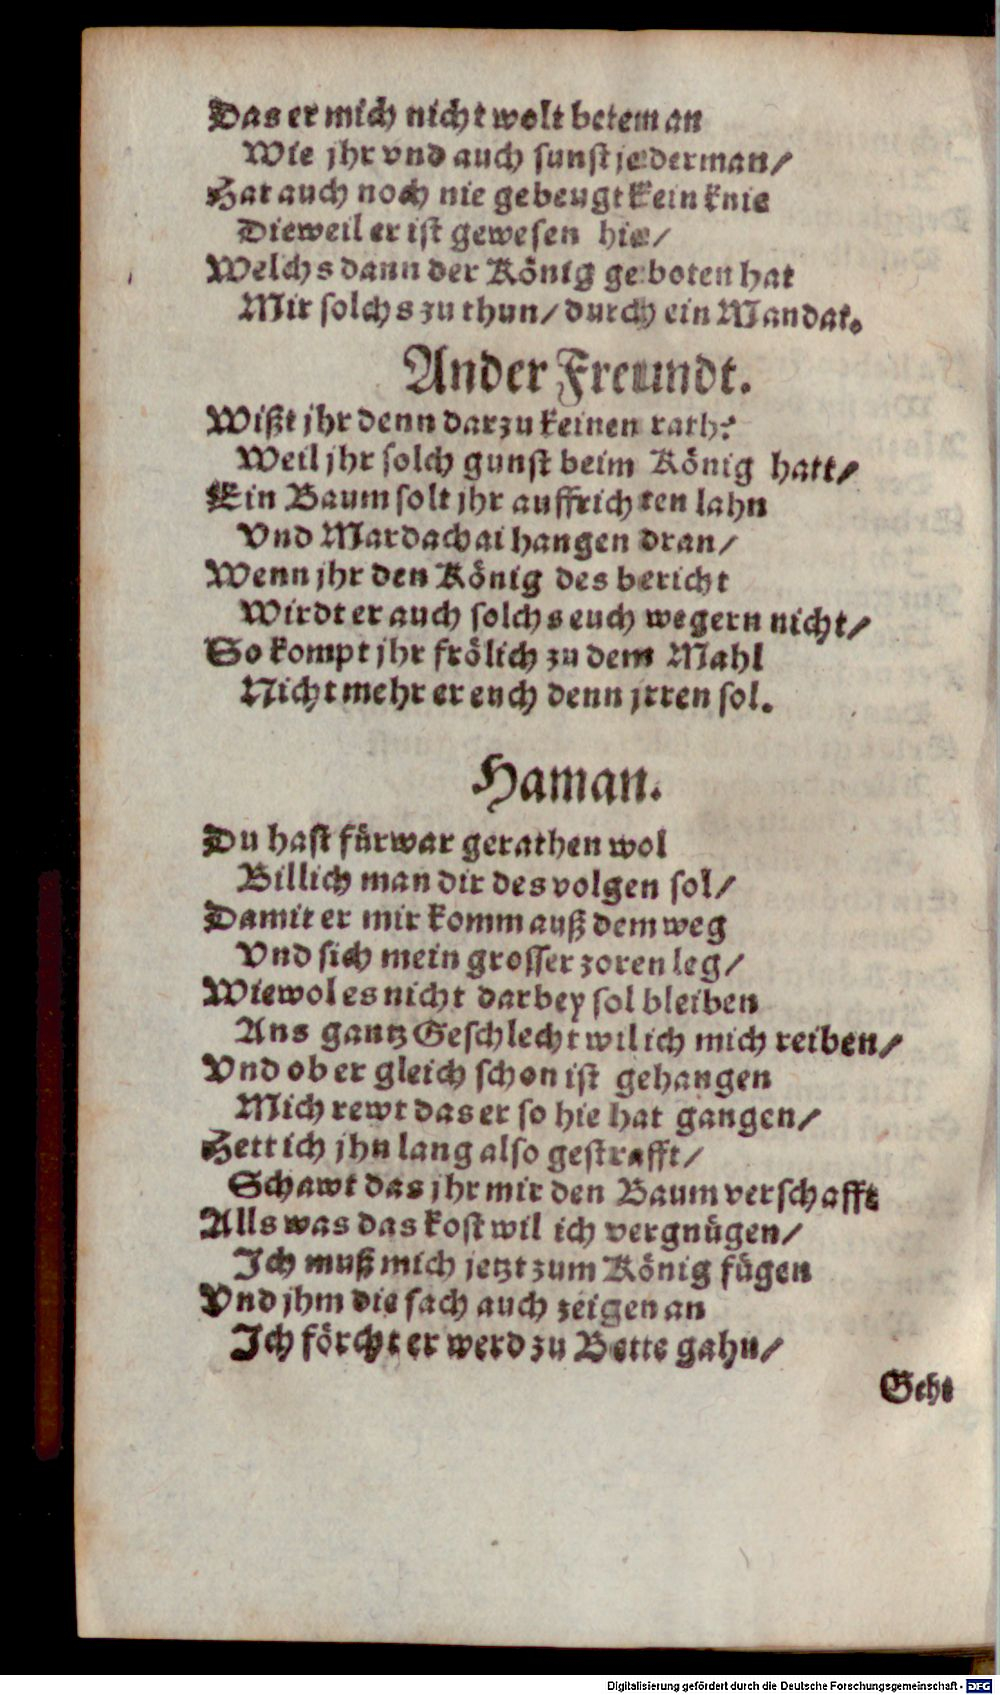 Das er mich nicht wolt beten an
Wie jhr vnd auch sunst jederman/
Hat auch noch nie gebeugt kein knie
Dieweil er ist gewesen hie/
Welchs dann der König geboten hat
Mir solchs zu thun/ durch ein Mandat.
Ander Freundt.
Wißt jhr denn darzu keinen rath?
Weil jhr solch gunst beim König hatt/
Ein Baum solt jhr auffrichten lahn
Vnd Mardachai hangen dran/
Wenn jhr den König des bericht
Wirdt er auch solchs euch wegern nicht/
So kompt jhr frölich zu dem Mahl
Nicht mehr er euch denn jrren sol.
Haman.
Du hast fürwar gerathen wol
Billich man dir des volgen sol/
Damit er mir komm auß dem weg
Vnd sich mein grosser zoren leg/
Wiewol es nicht darbey sol bleiben
Ans gantz Geschlecht wil ich mich reiben/
Vnd ob er gleich schon ist gehangen
Mich rewt das er so hie hat gangen/
Hett ich jhn lang also gestrafft/
Schawt das jhr mir den Baum verschafft
Alls was das kost wil ich vergnügen/
Ich muß mich jetzt zum König fügen
Vnd jhm die sach auch zeigen an
Ich förcht er werd zu Bette gahn/
Geht
Digitalisierung gefördert durch die Deutsche Forschungsgemeinschaft - DFG